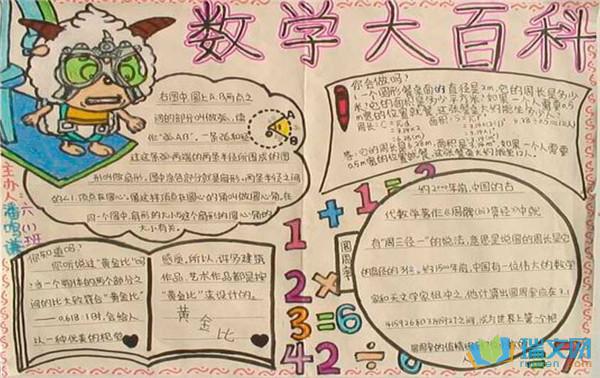 数学大百科
右图中,圆上A、B两点之
间的部分叫做弧,读
作"弧AB",一条弧和经
过这条弧两端的两条半径所围成的图
形叫做扇形。图中涂色部分就是扇形。两条半径之间
的∠1,顶点在圆心,像这样顶点在圆心的角叫做圆心角。在
同一个圆中,扇形的大小与这个扇形的圆心角的
大小有关。
A
B
主办人:
六(1)班
你会做吗?
1.一个圆形餐桌面的直径是2m,它的周长是多少
米?它的面积是多少平方米?如果一个人需要0.5
m宽的位置就餐,这张餐桌大约能坐多少人?
答:它的周长是6.28m,面积是3.14m²,如果一个人需要
0.5m宽的位置就餐,这张餐桌大约能坐12人。
1+1=2
2×
3=6
42÷6
7
你知道吗?
你听说过"黄金比"吗
?当一个物体的两个部分之
间的比大致符合"黄金比"
——0.618:1时,会给人
以一种优美的视觉
感觉。所以,许多建筑
作品、艺术作品都是按
"黄金比"来设计的。
黄金比
圆周率
约2000年前,中国的古
代数学著作《周髀(bì)算经》中就
有"周三径一"的说法,意思是说圆的周长是它
的直径的3倍。约1500年前,中国有一位伟大的数学
家和天文学家祖冲之。他计算出圆周率应在3.1
415926和3.1415927之间,成为世界上第一个把
圆周率的值精
瑞文网